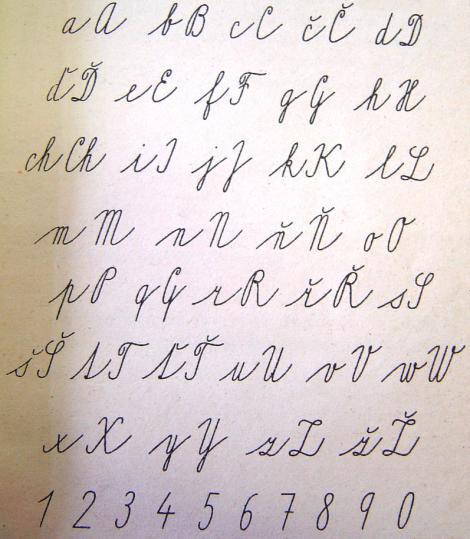 aA bB cC čČ dD
ďĎ eE fF gG hH
chCh iI jJ kK lL
mM nN ňŇ oO
pP qQ rR řŘ sS
šŠ tT ťŤ uU vV wW
xX yY zZ žŽ
1 2 3 4 5 6 7 8 9 0